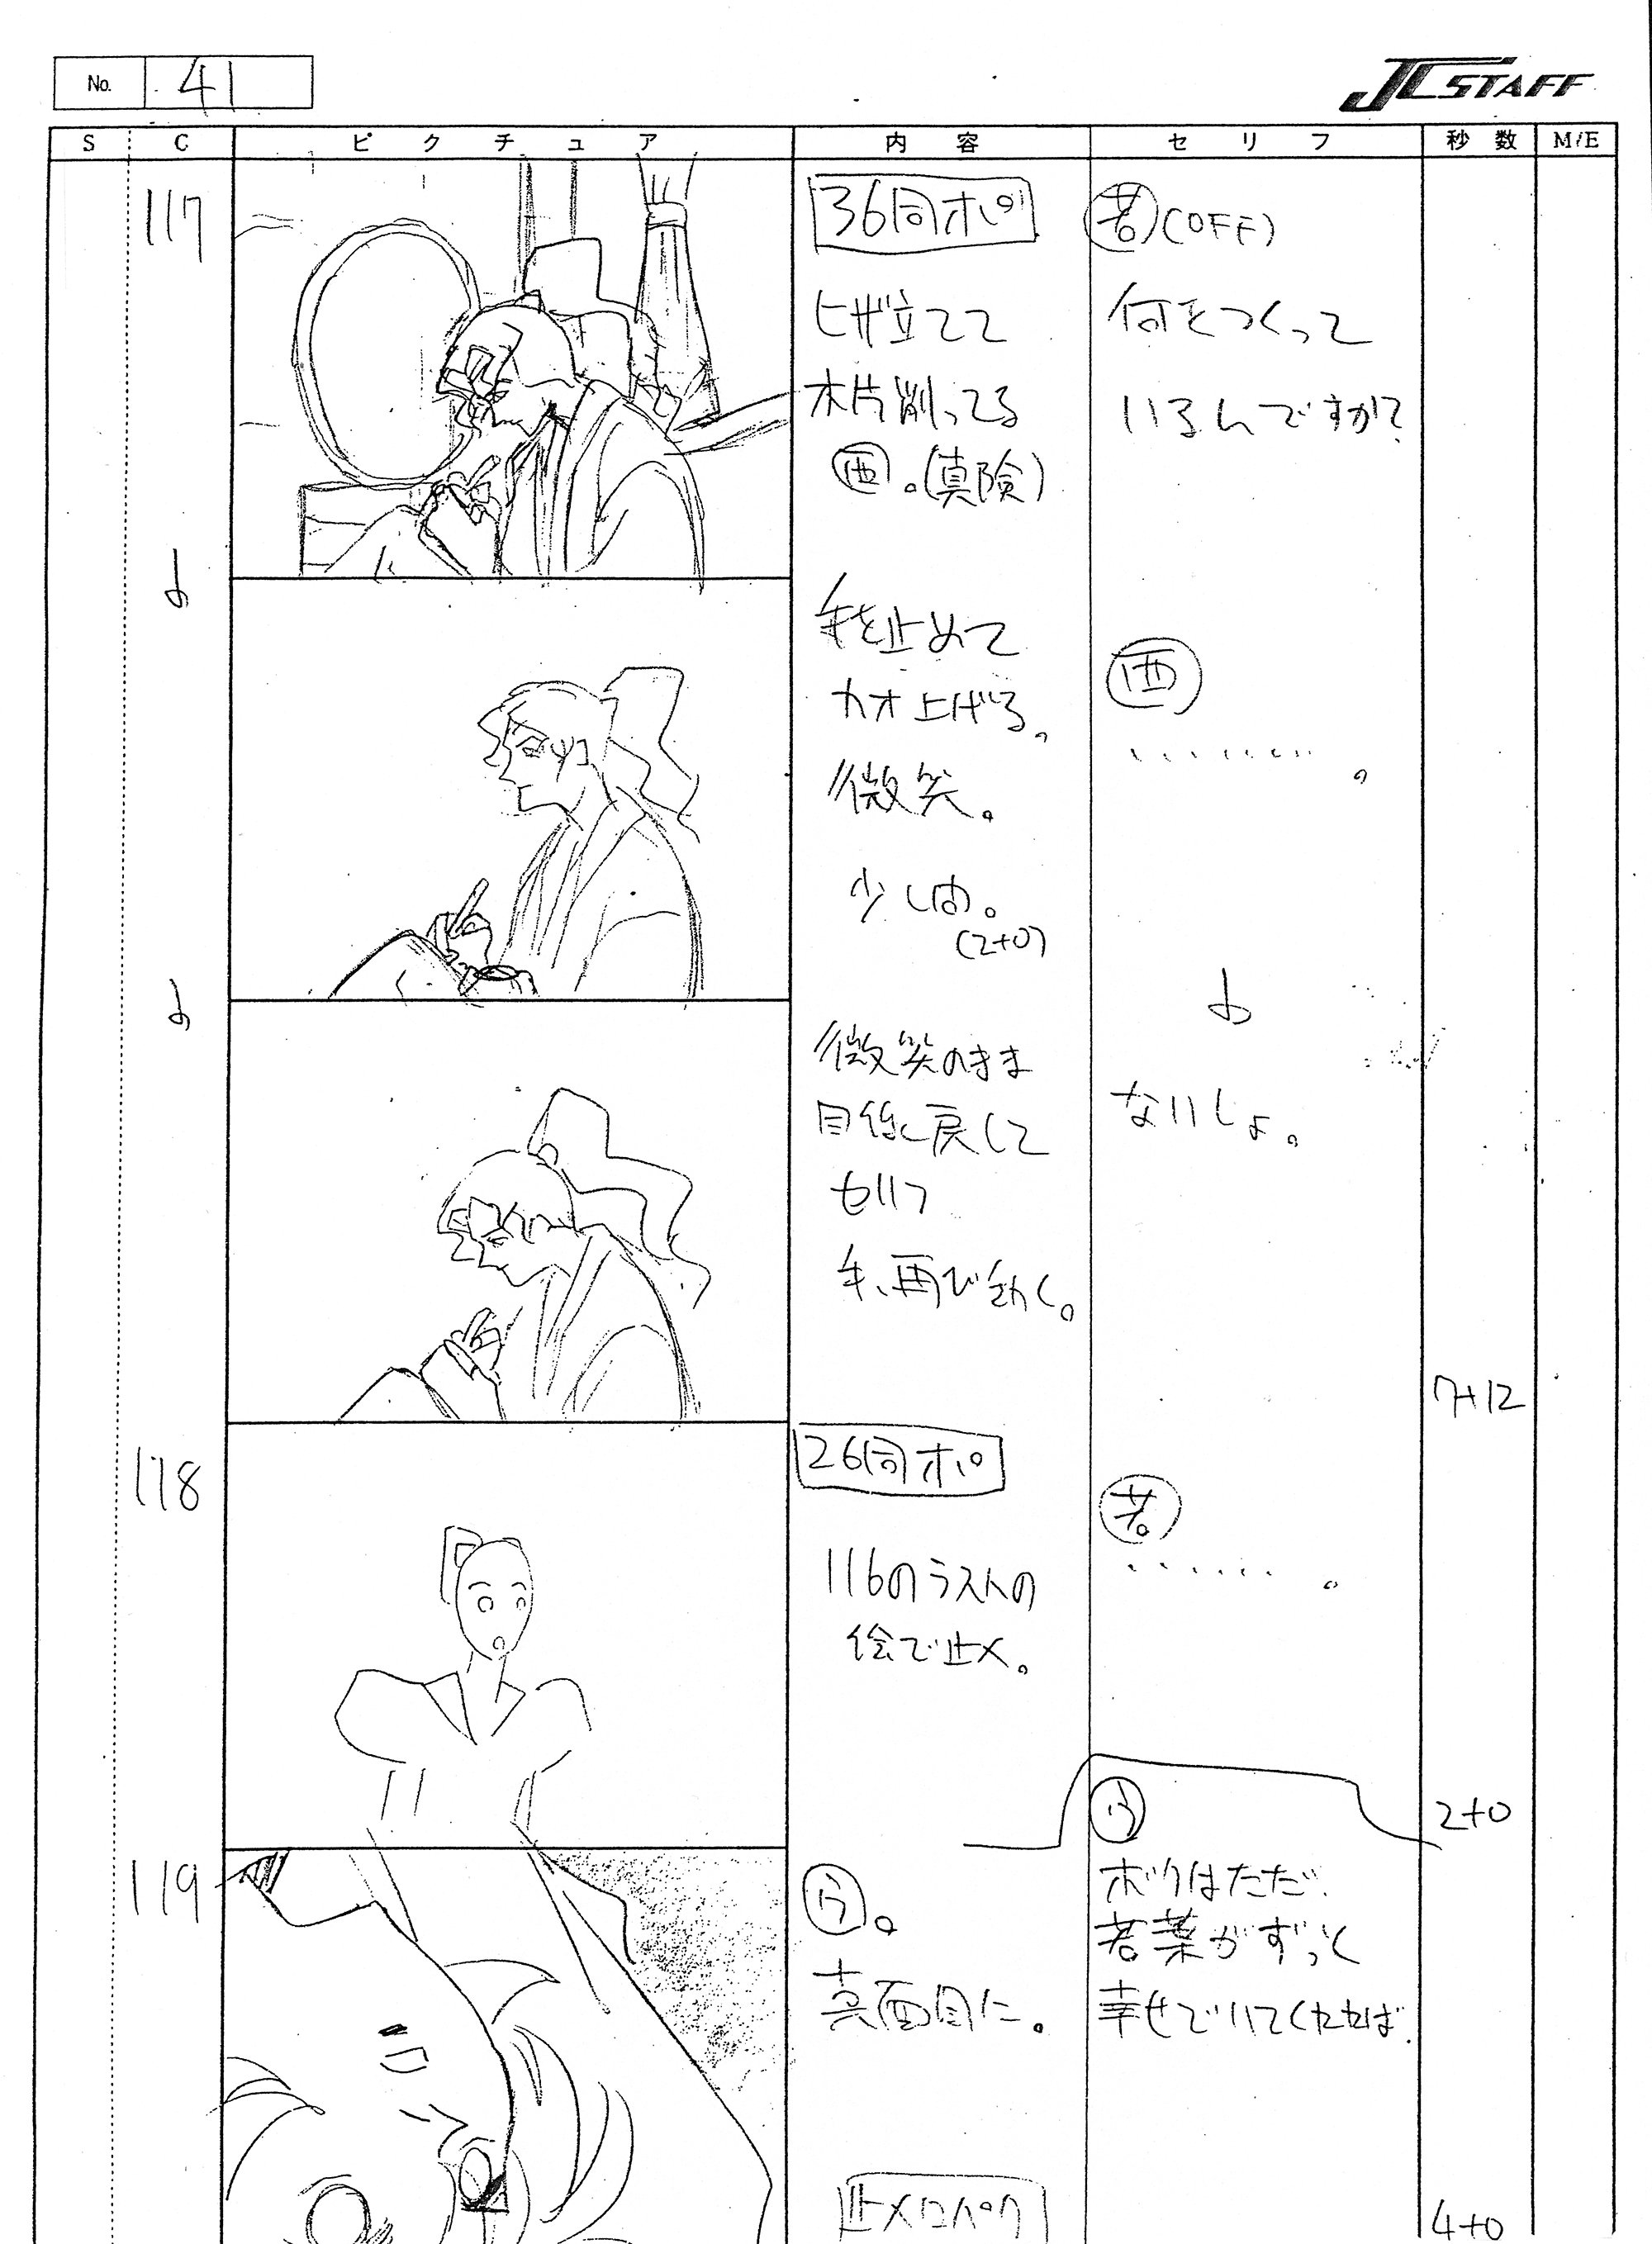 No. 41
JC STAFF
S C ピクチュア 内容 セリフ 秒数 M/E
117
36同ポ
ヒザ立てて
木片削ってる
西。(真険)
若(OFF)
何をつくって
いるんですか?
手を止めて
カオ上げる。
微笑。
少し間。
(2+0)
西
………。
微笑のまま
目线に戻して
セリフ
手、再び動く。
ないしょ。
7+12
118
26同ポ
116のラストの
絵で止メ。
若
……。
2+0
119
真面目に。
ボクはただ、
若葉がずっと
幸せでいてくれれば、
止メ口パク
4+0